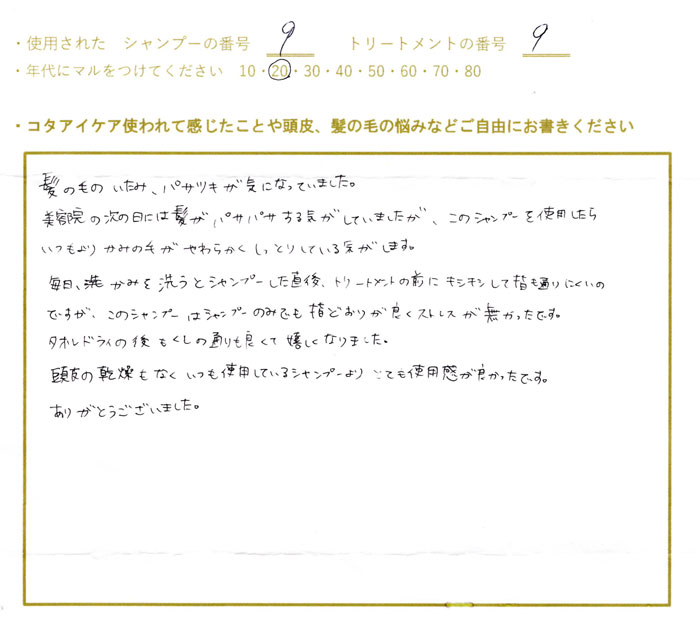 ・使用された シャンプーの番号 9 トリートメントの番号 9
・年代にマルをつけてください 10・20・30・40・50・60・70・80
・コタアイケア使われて感じたことや頭皮、髪の毛の悩みなどご自由にお書きください
髪の毛の いたみ、パサツキが気になっていました。
美容院の次の日には髪がパサパサする気がしていましたが、このシャンプーを使用したら
いつもより かみの毛が やわらかく しっとりしている気がします。
毎日、かみを洗うとシャンプーした直後、トリートメントの前にキシキシして指も通りにくいの
ですが、このシャンプーはシャンプーのみでも指どおりが良くストレスが無かったです。
タオルドライの後もくしの通りも良くて嬉しくなりました。
頭皮の乾燥もなくいつも使用しているシャンプーよりとても使用感が良かったです。
ありがとうございました。